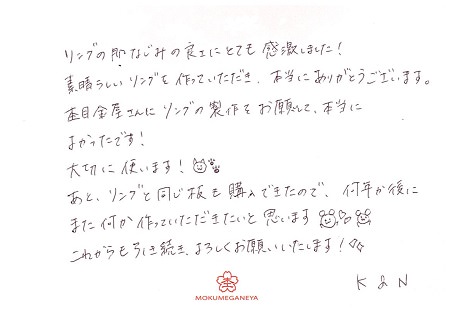 リングの肌なじみの良さにとても感激しました!
素晴らしいリングを作っていただき、本当にありがとうございます。
杢目金屋さんにリングの製作をお願いして、本当に
よかったです!
大切に使います!
あと、リングと同じ板も購入できたので、何年か後に
また何か作っていただきたいと思います
これからも引き続き、よろしくお願いいたします!
K & N
MOKUMEGANEYA